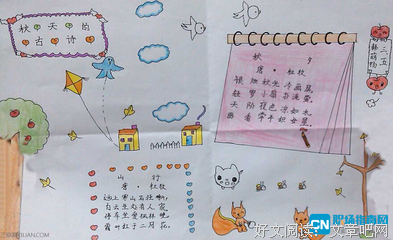 秋天的
古诗
秋 夕
唐·杜牧
银烛秋光冷画屏,
轻罗小扇扑流萤。
天阶夜色凉如水,
卧看牵牛织女星。
三五
山 行
唐·杜牧
远上寒山石径斜,
白云生处有人家。
停车坐爱枫林晚,
霜叶红于二月花。
CN 职场指南网
好文阅读：文章吧网